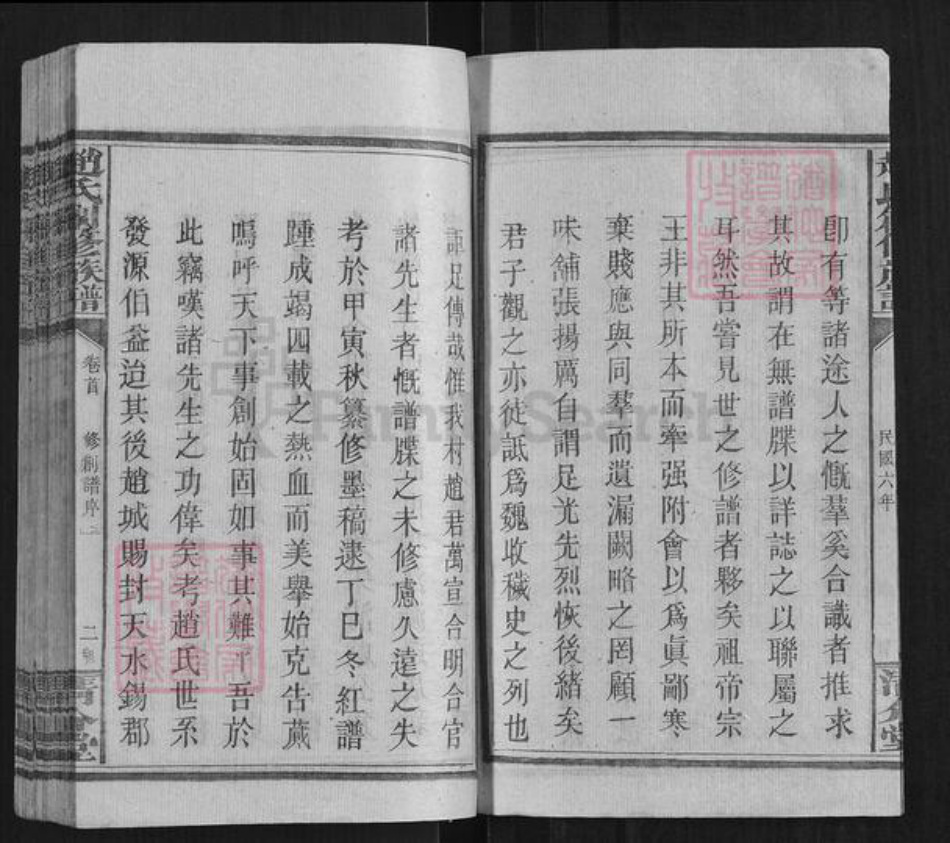 民國六年
卽有等諸途人之慨羣奚合識者推求
其故謂在無譜牒以詳誌之以聯屬之
耳然吾嘗見世之修譜者夥矣祖帝宗
王非其所本而牽强附會以爲眞鄙寒
棄賤應與同羣而遺漏闕略之罔顧一
味舖張揚厲自謂足光先烈恢後緒矣
君子觀之亦徒詆爲魏收穢史之列也
詎足傳哉惟我村趙君萬宣合明合官
諸先生者慨譜牒之未修慮久遠之失
考於甲寅秋纂修墨稿逮丁巳冬紅譜
踵成竭四載之熱血而美舉始克告蕆
嗚呼天下事創始固如事其難乎吾於
此竊嘆諸先生之功偉矣考趙氏世系
發源伯益迨其後趙城賜封天水錫郡
趙氏創修族譜
卷首
修創譜序
二
Funny Search